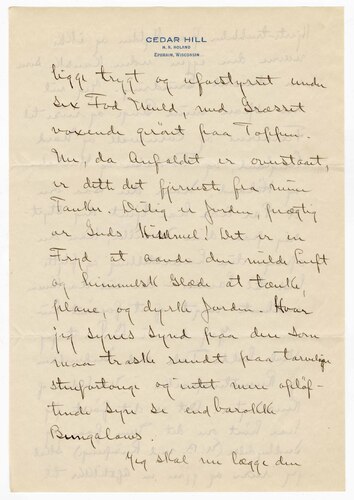 CEDAR HILL
H. R. HOLAND
EPHRAIM, WISCONSIN
ligge trygt og uforstyrret under
sex Fod Muld, med Græsset
voxende grönt paa Toppen.
Nu, da Anfaldet er overstaaet,
er dette det fjerneste fra mine
Tanker. Deilig er Jorden, prægtig
er Guds Himmel! Det er en
Fryd at aande den milde Luft
og himmelsk Glæde at tænke,
plane, og dyrke Jorden. Hvor
jeg synes Synd paa dem som
maa traske rundt paa taruelige
stenfortouge og intet mere opløf-
tende Syn se end barokke
Bungalows.
Jeg skal nu lægge den